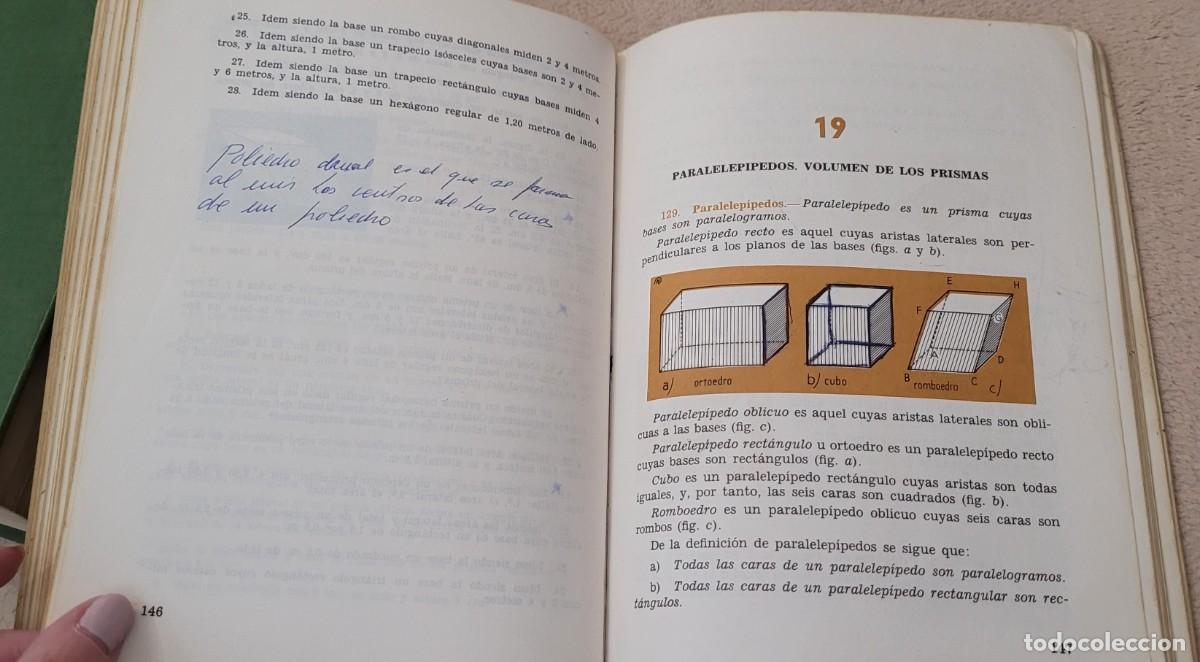 25. Idem siendo la base un rombo cuyas diagonales miden 2 y 4 metros.
26. Idem siendo la base un trapecio isósceles cuyas bases son 2 y 4 me-
tros, y la altura, 1 metro.
27. Idem siendo la base un trapecio rectángulo cuyas bases miden 4
y 6 metros, y la altura, 1 metro.
28. Idem siendo la base un hexágono regular de 1,20 metros de lado.
Poliedro es el que se forma
al unir los centros de las caras
de un poliedro
146
19
PARALELEPIPEDOS. VOLUMEN DE LOS PRISMAS
129. Paralelepípedos.—Paralelepípedo es un prisma cuyas
bases son paralelogramos.
Paralelepípedo recto es aquel cuyas aristas laterales son per-
pendiculares a los planos de las bases (figs. a y b).
E H
F G
A D
B C
a) ortoedro b) cubo romboedro c)
Paralelepípedo oblicuo es aquel cuyas aristas laterales son obli-
cuas a las bases (fig. c).
Paralelepípedo rectángulo u ortoedro es un paralelepípedo recto
cuyas bases son rectángulos (fig. a).
Cubo es un paralelepípedo rectángulo cuyas aristas son todas
iguales, y, por tanto, las seis caras son cuadrados (fig. b).
Romboedro es un paralelepípedo oblicuo cuyas seis caras son
rombos (fig. c).
De la definición de paralelepípedos se sigue que:
a) Todas las caras de un paralelepípedo son paralelogramos.
b) Todas las caras de un paralelepípedo rectangular son rec-
tángulos.
147
todocoleccion